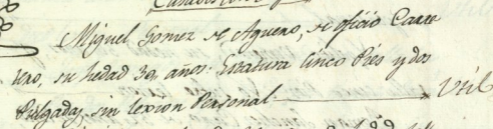 Miguel Gomez de Aguero, de oficio Carre
tero, su hedad 30 años: Estatura Cinco Pies y dos
Pulgadas, sin lexion Personal. Util